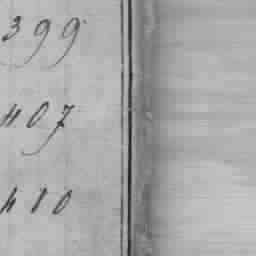 399
407
410